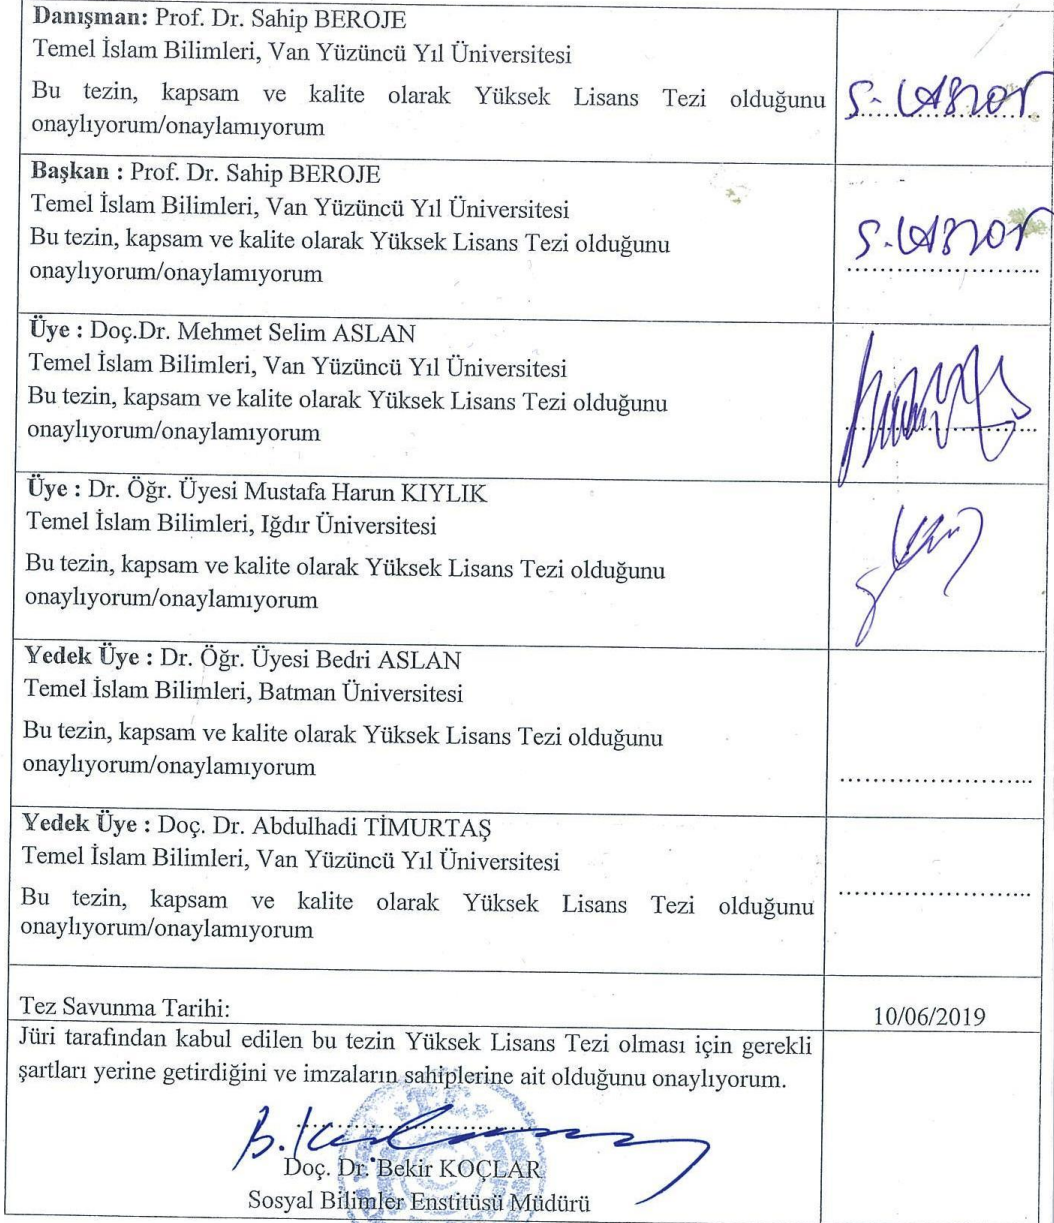 Danışman: Prof. Dr. Sahip BEROJE
Temel İslam Bilimleri, Van Yüzüncü Yıl Üniversitesi
Bu tezin, kapsam ve kalite olarak Yüksek Lisans Tezi olduğunu
onaylıyorum/onaylamıyorum
Başkan : Prof. Dr. Sahip BEROJE
Temel İslam Bilimleri, Van Yüzüncü Yıl Üniversitesi
Bu tezin, kapsam ve kalite olarak Yüksek Lisans Tezi olduğunu
onaylıyorum/onaylamıyorum
Üye : Doç.Dr. Mehmet Selim ASLAN
Temel İslam Bilimleri, Van Yüzüncü Yıl Üniversitesi
Bu tezin, kapsam ve kalite olarak Yüksek Lisans Tezi olduğunu
onaylıyorum/onaylamıyorum
Üye : Dr. Öğr. Üyesi Mustafa Harun KIYLIK
Temel İslam Bilimleri, Iğdır Üniversitesi
Bu tezin, kapsam ve kalite olarak Yüksek Lisans Tezi olduğunu
onaylıyorum/onaylamıyorum
Yedek Üye : Dr. Öğr. Üyesi Bedri ASLAN
Temel İslam Bilimleri, Batman Üniversitesi
Bu tezin, kapsam ve kalite olarak Yüksek Lisans Tezi olduğunu
onaylıyorum/onaylamıyorum
Yedek Üye : Doç. Dr. Abdulhadi TİMURTAŞ
Temel İslam Bilimleri, Van Yüzüncü Yıl Üniversitesi
Bu tezin, kapsam ve kalite olarak Yüksek Lisans Tezi olduğunu
onaylıyorum/onaylamıyorum
Tez Savunma Tarihi: 10/06/2019
Jüri tarafından kabul edilen bu tezin Yüksek Lisans Tezi olması için gerekli
şartları yerine getirdiğini ve imzaların sahiplerine ait olduğunu onaylıyorum.
Doç. Dr. Bekir KOÇLAR
Sosyal Bilimler Enstitüsü Müdürü